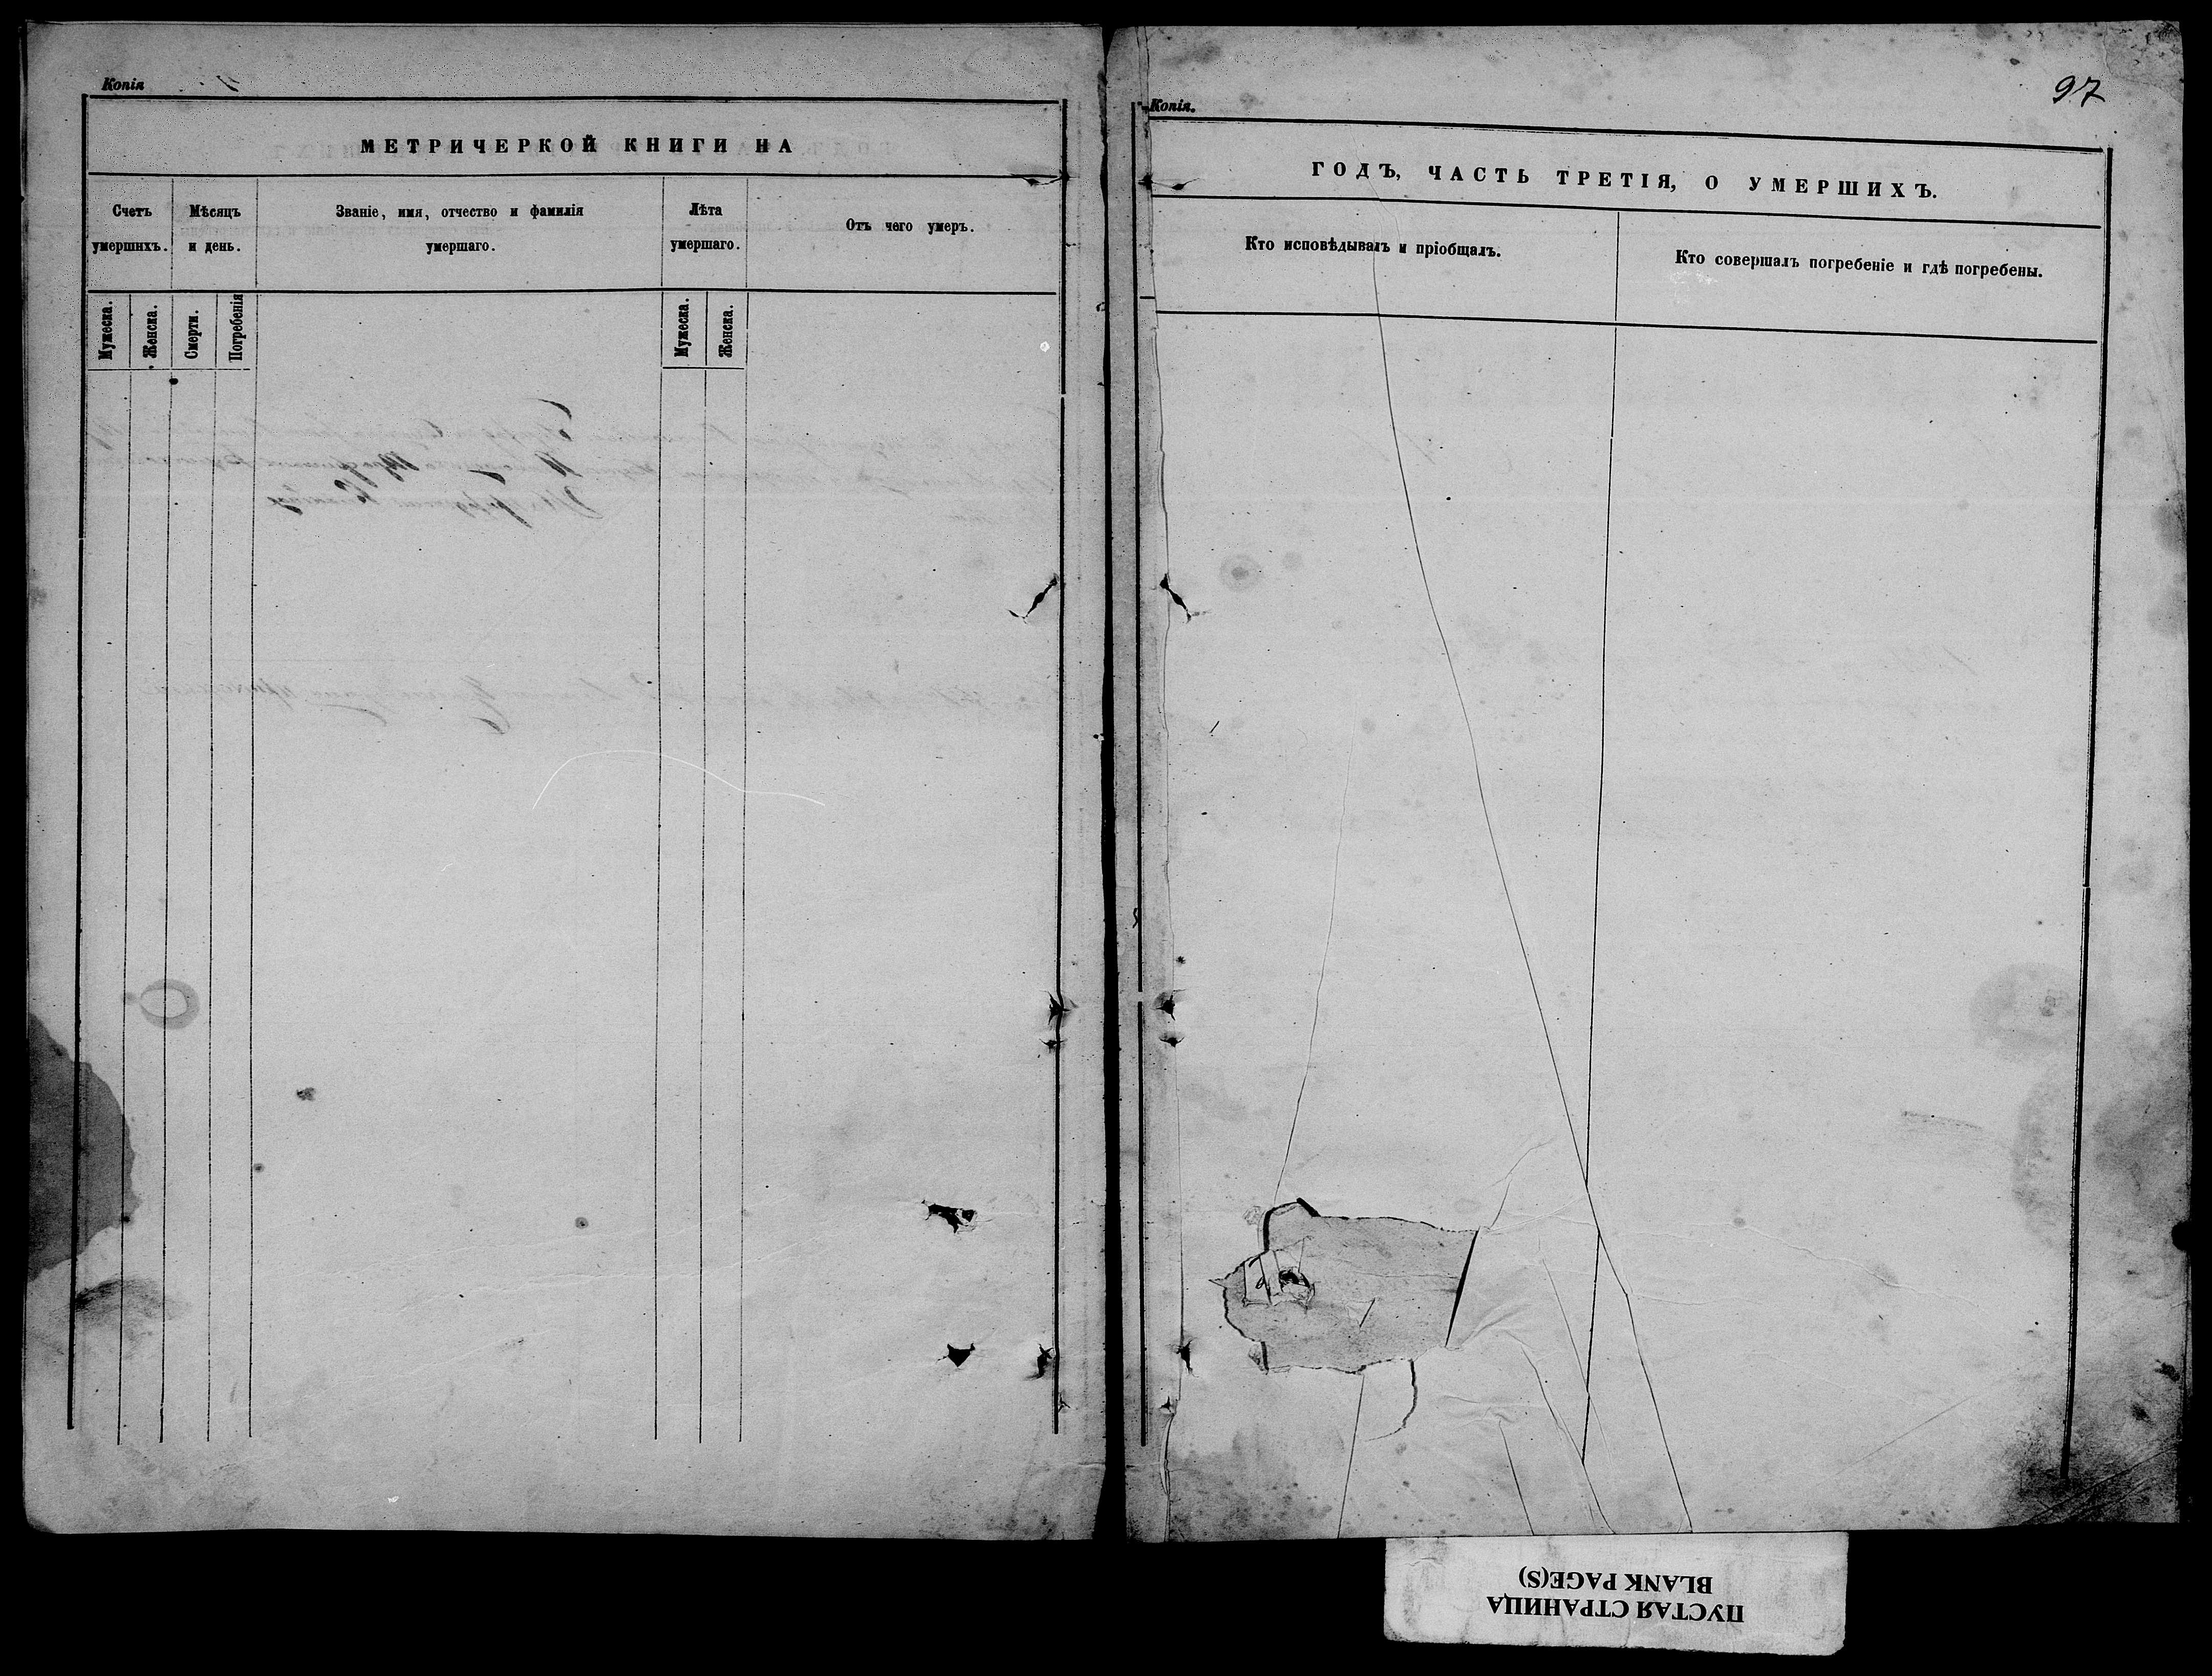 Копія
МЕТРИЧЕРКОЙ КНИГИ НА
Счетъ умершихъ.
Мѣсяцъ и день.
Званіе, имя, отчество и фамилія умершаго.
Лѣта умершаго.
Отъ чего умеръ.
Мужеска.
Женска.
Смерти.
Погребенія
Мужеска.
Женска.
97
Копія.
ГОДЪ, ЧАСТЬ ТРЕТІЯ, О УМЕРШИХЪ.
Кто исповѣдывалъ и пріобщалъ.
Кто совершалъ погребеніе и гдѣ погребены.
ПУСТАЯ СТРАНИЦА
BLANK PAGE(S)